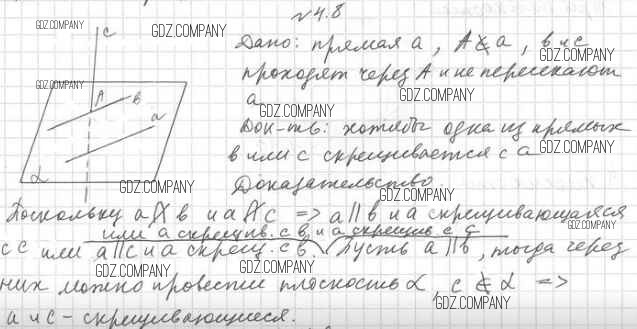 №4.8
GDZ.COMPANY
GDZ.COMPANY
c
Дано: прямая a, A∉a, b и c
GDZ.COMPANY
проходят через A и не пересекают
GDZ.COMPANY
GDZ.COMPANY
a
GDZ.COMPANY
A b a
Док-ть: хотябы одна из прямых
b или c скрещивается с a
GDZ.COMPANY
α
GDZ.COMPANY
Доказательство
GDZ.COMPANY
Поскольку a∦b и a∦c => a||b и a скрещивающаяся
или a скрещив. с b и a скрещив с c
с c или a||c и a скрещ. с b. Пусть a||b, тогда через
GDZ.COMPANY
GDZ.COMPANY
GDZ.COMPANY
них можно провести плоскость α, c ⊄ α =>
GDZ.COMPANY
a и c - скрещивающиеся.